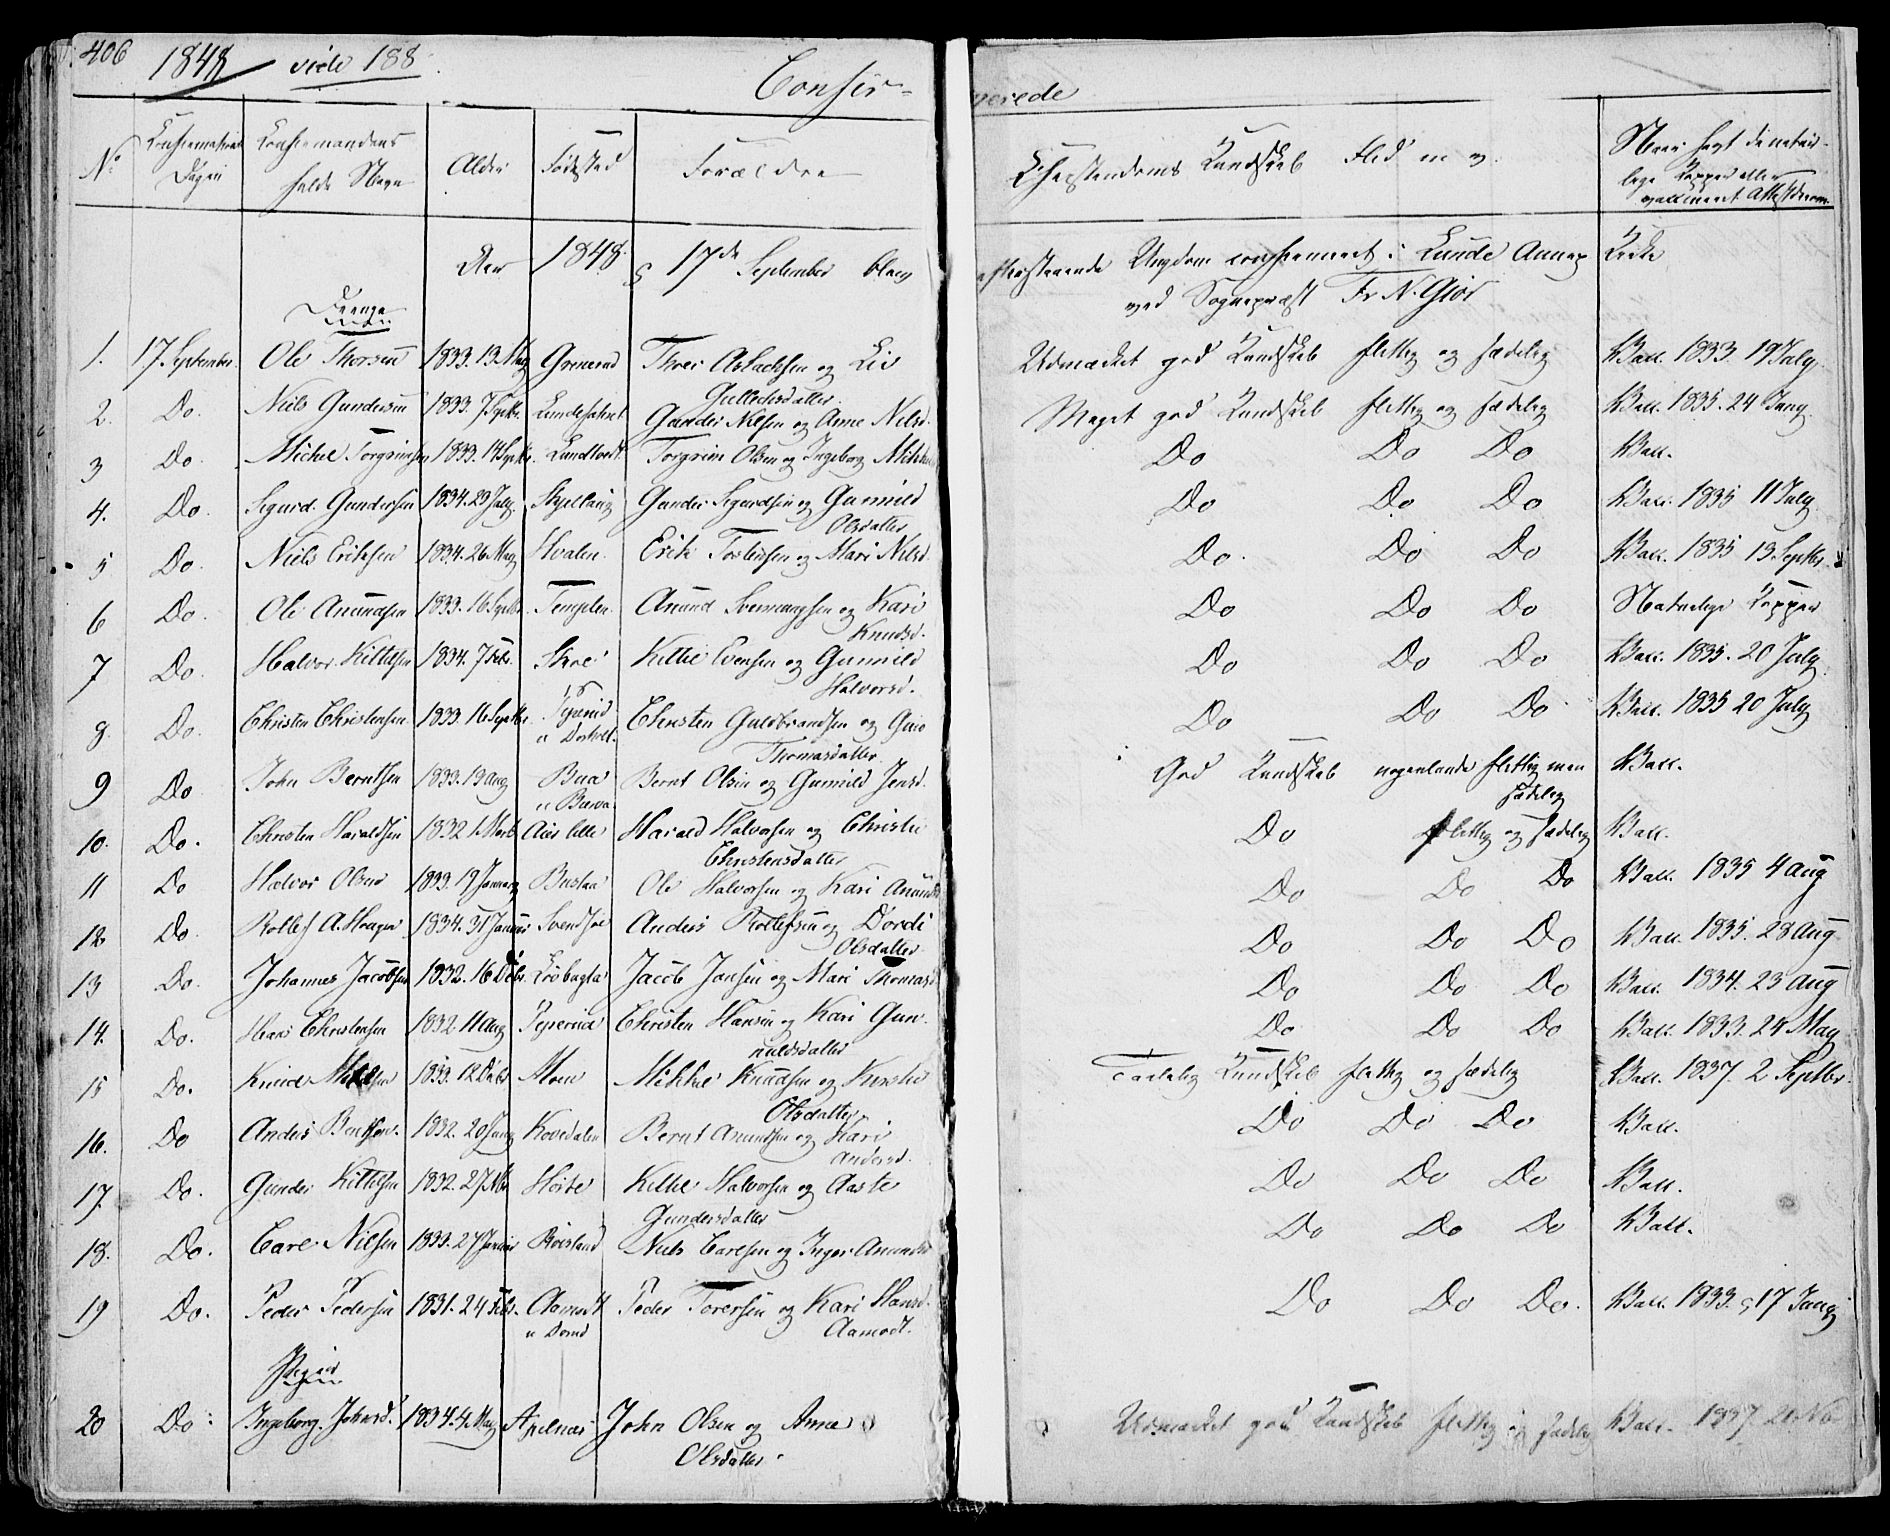 406 1848 vide 188
Confir-
merede
No Confirmations Dagen Confirmandens fulde Navn Alder Fødested Forældre
Christendoms Kundskab Flid m v.
Naar havt de naturlige Kopper eller vaccineret
Den 17de September 1848 blev efterstaaende Ungdom confirmeret i Lunde Annex Kirke
ved Sognepræst Fr N. Giør
Drenge
1. 17. September Ole Thorsen 1833. 13 May Grinerud Thor Aslachsen og Liv Gullechsdatter. Udmærket god Kundskab flittig og sædelig Vacc. 1833. 19 July.
2. Do. Niels Gundersen 1833. 7 Septbr. Lunde Gunder Nielsen og Anne Nilsd. Meget god Kundskab flittig og sædelig Vacc. 1835. 24 Juny.
3 Do. Michel Torgrimsen 1833. 14 Septbr. Torgrim Olsen og Ingeborg Do Do Do Vacc.
4. Do. Sigurd Gundersen 1834. 29 July Gunder Sigurdsen og Gunnild Olsdatter Do Do Do Vacc. 1835 11 July
5 Do. Niels Eriksen 1834. 26 May Hvalen Erik Torstensen og Mari Nilsd. Do. Do Do Vacc. 1835 13 Septbr.
6 Do. Ole Anundsen 1833. 16 Septbr. Tempelen Anund Svennungsen og Kari Knudsd. Do Do Do Naturlige Kopper
7 Do. Halvor Kittelsen 1834. 7 Febr. Kittil Evensen og Gunnild Halvorsd. Do Do Do Vacc. 1835. 20 July
8. Do. Christen Christensen 1833. 16 Septbr. Christen Guldbrandsen og Thomasdatter Do Do Do Vacc. 1835 20 July
9 Do John Berntsen 1833. 13 Aug Bernt Olsen og Gunnild Jensd. God Kundskab nogenlunde flittig men sædelig Vacc.
10. Do. Christen Haraldsen 1832 1 Marts Aas lille Harald Halvorsen og Christie Christensdatter Do flittig og sædelig Vacc.
11 Do Halvor Olsen 1833. 19 January Bustaa Ole Halvorsen og Kari Do Do Do Vacc. 1835 4 Aug
12 Do. Rollef A. 1834. 31 Januar Anders Rollefsen og Dordi Olsdatter Do Do Do Vacc. 1835. 28 Aug
13 Do. Johannes Jacobsen 1832. 16 Jacob Jansen og Mari Thomasd Do Do Do Vacc. 1834. 23 Aug
14. Do. Hans Christensen 1832. 11 Aug Christen Hansen og Kari Gunnuldsdatter Do Do Do Vacc. 1833. 24 May
15 Do. Knud Moen Mikkel Knudsen og Kirstie Olsdatter Taalelig Kundskab flittig og sædelig Vacc. 1837. 2 Septbr.
16. Do Anders Berntsen. 1832. 20 Juny Kovedalen Bernt Anundsen og Kari Andersd. Do Do Do Vacc.
17. Do. Gunder Kittelsen 1832. 27 Nbr Kittil Halvorsen og Aaste Gundersdatter Do Do Do Vacc.
18. Do. Carl Nielsen 1833. 27 Januar Roisland Niels Carlsen og Inger Do Do Do Vacc.
19 Do. Peder Pedersen 1831. 24 Febr. Aamodt Peder Torersen og Kari Hansd. Aamodt. Do Do Do. Vacc. 1833. 17 Juny
Piger
20 Do. Ingeborg Johnsd. 1834. 4 May Apelnæs John Olsen og Anne Olsdatter. Udmærket god Kundskab flittig og sædelig Vacc. 1837. 21